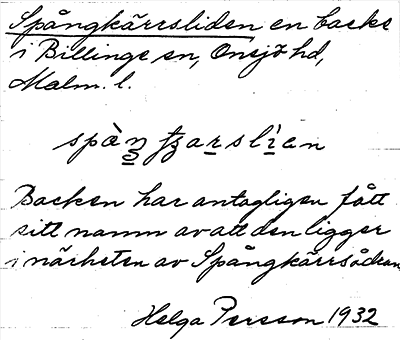 Spångkärrsliden en backe
i Billinge sn, Onsjö hd,
Malm. l.
spàn̲ tʒar̲slì̲en
Backen har antagligen fått
sitt namn av att den ligger
i närheten av Spångkärrsådran.
Helga Persson 1932